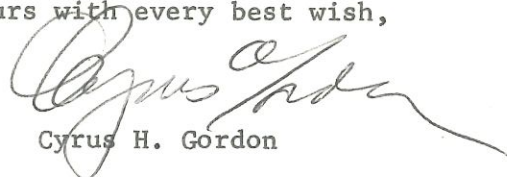 urs with every best wish,
Cyrus Gordon
Cyrus H. Gordon